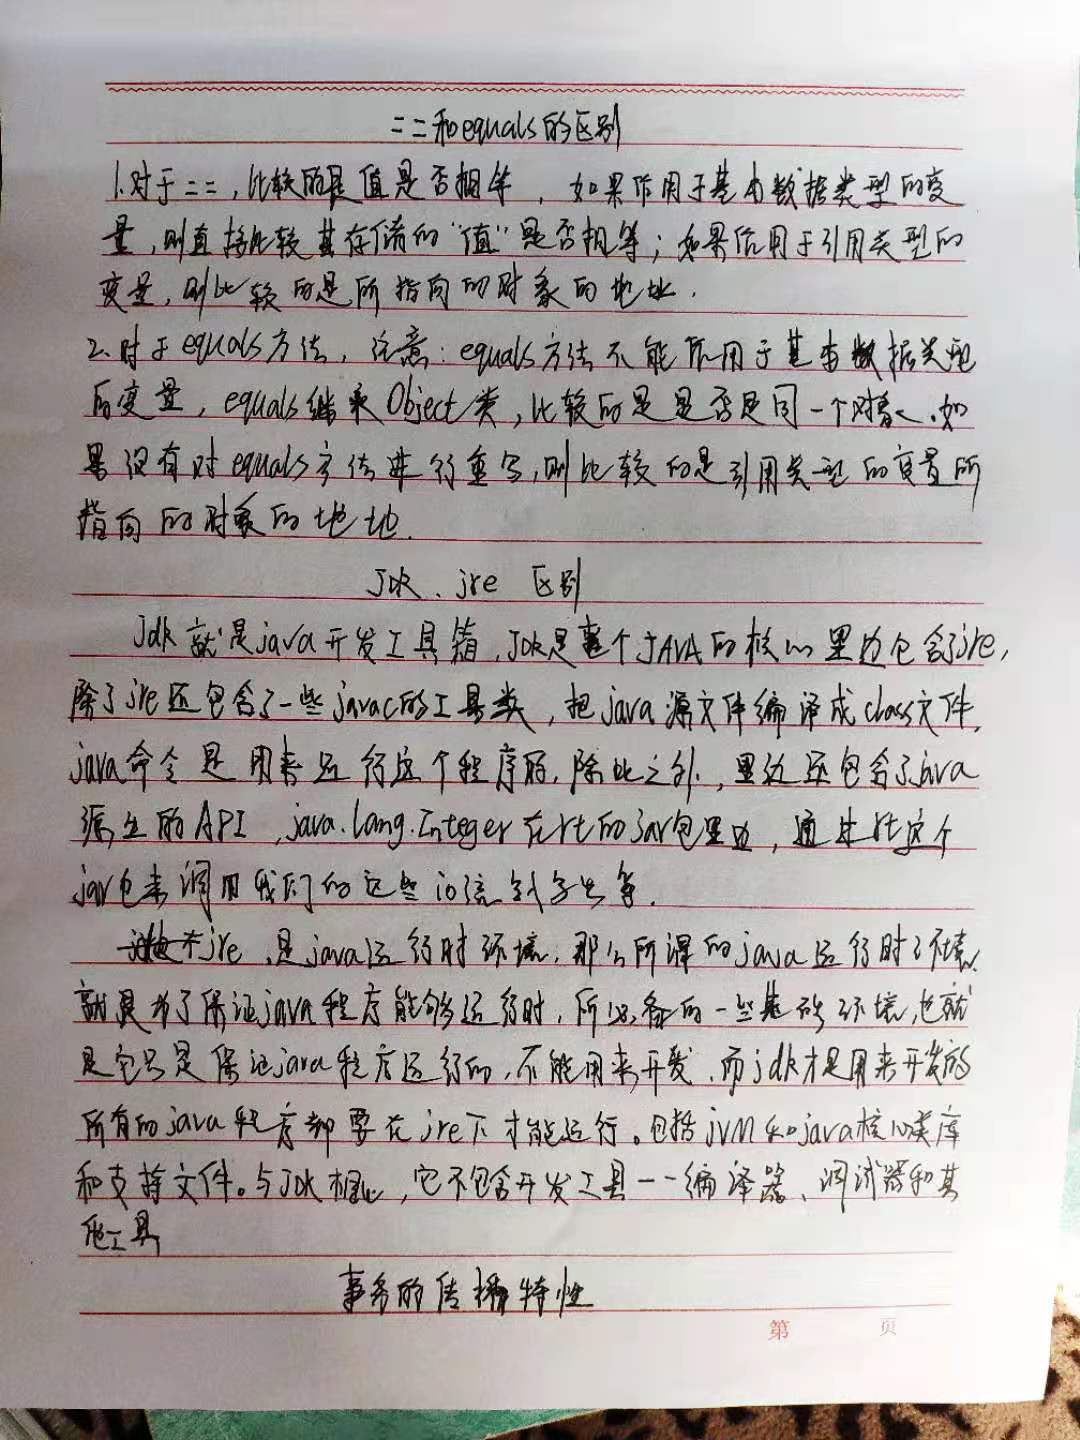 ==和equals的区别
1.对于==,比较的是值是否相等,如果作用于基本数据类型的变
量,则直接比较其存储的“值”是否相等;如果作用于引用类型的
变量,则比较的是所指向的对象的地址.
2.对于equals方法,注意:equals方法不能作用于基本数据类型
的变量,equals继承Object类,比较的是是否是同一个对象.如
果没有对equals方法进行重写,则比较的是引用类型的变量所
指向的对象的地址.
Jdk、jre 区别
Jdk就是java开发工具箱,JDK是整个JAVA的核心里边包含了jre,
除了jre还包含了一些javac的工具类,把java源文件编译成class文件,
java命令是用来运行这个程序的,除此之外,里边还包含了java
源生的API,java.lang.Integer在rt的jar包里边,通过rt这个
jar包来调用我们的这些io流到字出等.
jre,是java运行时环境,那么所谓的java运行时环境,
就是为了保证java程序能够运行时,所必备的一些基础环境,也就
是它只是保证java程序运行的,不能用来开发,而jdk才是用来开发的
所有的java程序都要在jre下才能运行。包括JVM和java核心类库
和支持文件。与JDK相比,它不包含开发工具--编译器、调试器和其
他工具
事务的传播特性
第 页